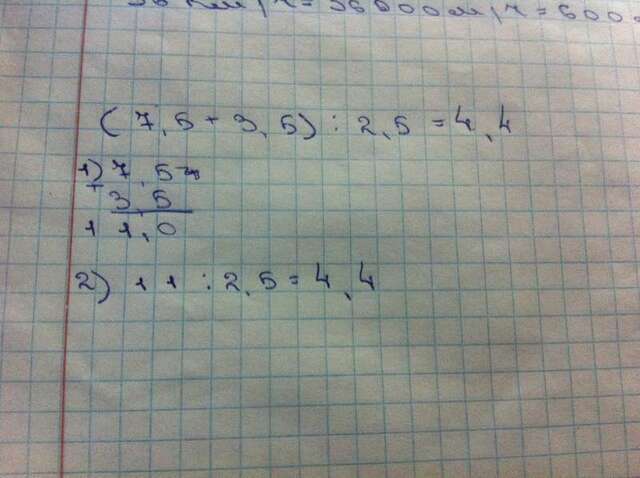 = 36000 м/ч = 600
(7,5 + 3,5) : 2,5 = 4,4
1) 7,5
+ 3,5
11,0
2) 11 : 2,5 = 4,4